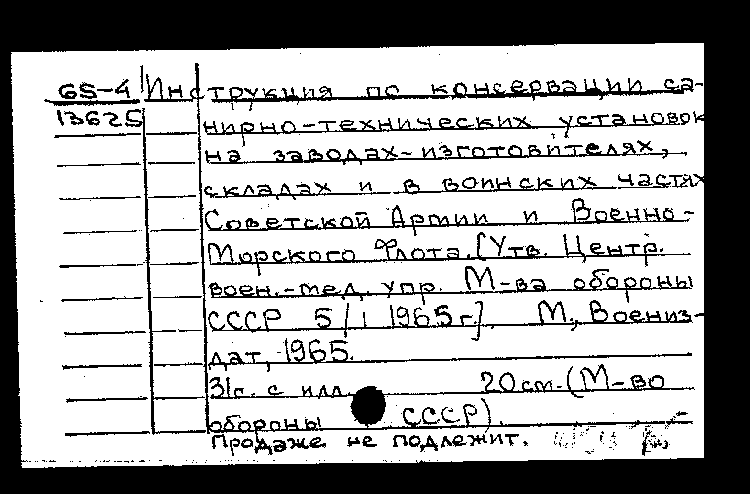 65-4 Инструкция по консервации са-
13625 нирно-технических установок
на заводах-изготовителях,
складах и в воинских частях
Советской Армии и Военно-
Морского Флота. [Утв. Центр.
воен.-мед. упр. М-ва обороны
СССР 5/I 1965 г.]. М., Воениз-
дат, 1965.
31 с. с илл. 20 см. (М-во
обороны СССР).
Продаже не подлежит.